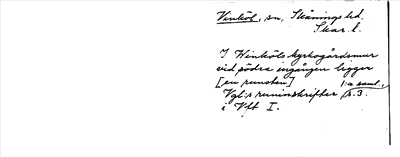 Vinköl, sn, Skånings hd.
Skar. l.
I Winköls kyrkogårdsmur
vid södra ingången ligger
[en runsten]
1:a saml.,
Vgl:s runinskrifter s. 3.
i Vft I.